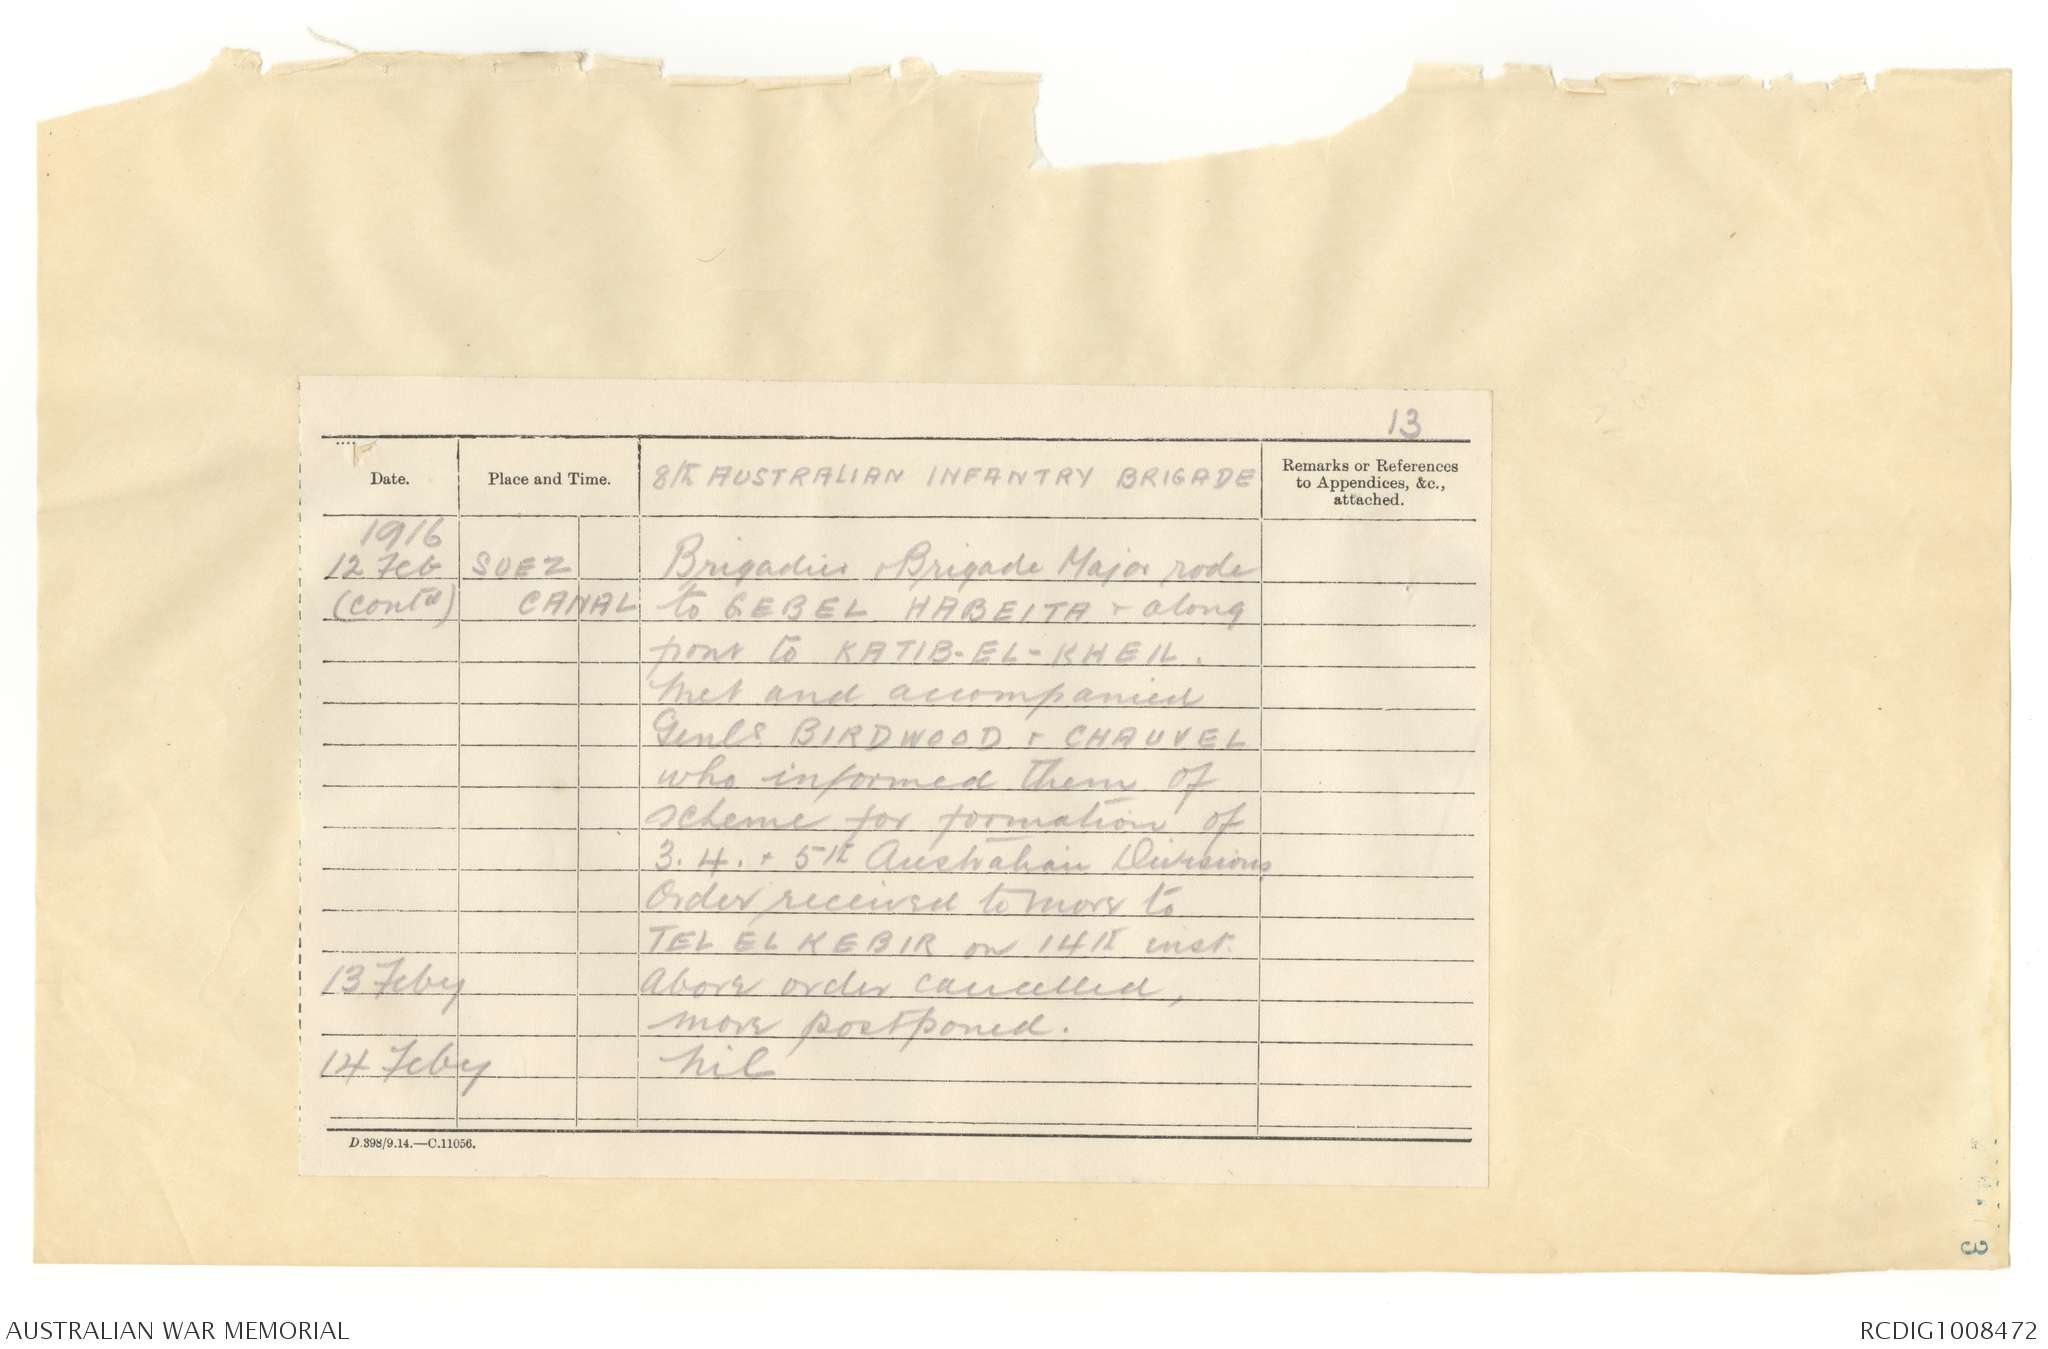 13
Date.
Place and Time.
8th AUSTRALIAN INFANTRY BRIGADE
Remarks or References
to Appendices, &c.,
attached.
1916
12 Feb SUEZ Brigadier & Brigade Major rode
(contd) CANAL to GEBEL HABEITA & along
front to KATIB-EL-KHEIL.
Met and accompanied
Genls BIRDWOOD & CHAUVEL
who informed them of
scheme for formation of
3. 4. & 5th Australian Divisions
Order received to move to
TEL EL KEBIR on 14th inst.
13 Feby Above order cancelled,
move postponed.
14 Feby Nil
D.398/9.14.—C.11056.
3
AUSTRALIAN WAR MEMORIAL
RCDIG1008472